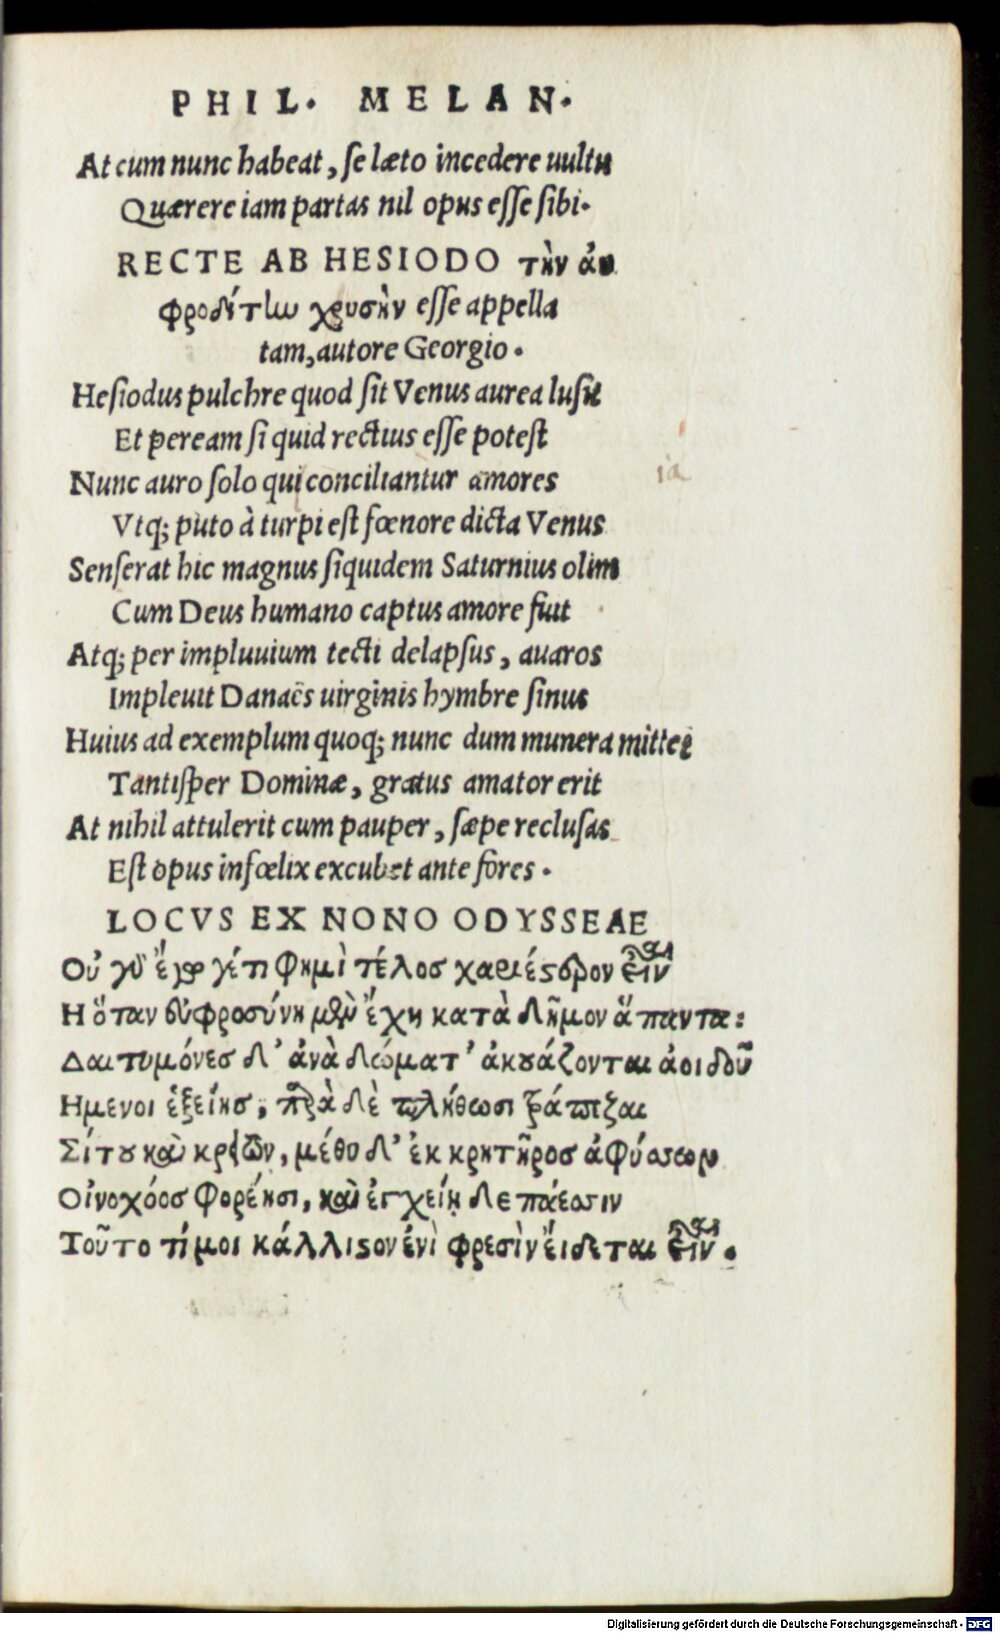 PHIL. MELAN.
At cum nunc habeat, ſe læto incedere uultu
Quærere iam partas nil opus eſſe ſibi.
RECTE AB HESIODO τὴν ἀ
φροδίτίω χρυσὴν eſſe appella
tam, autore Georgio.
Heſiodus pulchre quod ſit Venus aurea luſit
Et peream ſi quid rectius eſſe poteſt
Nunc auro ſolo qui conciliantur amores
Vtq; puto à turpi eſt fœnore dicta Venus
Senſerat hic magnus ſiquidem Saturnius olim
Cum Deus humano captus amore fuit
Atq; per impluuium tecti delapſus, auaros
Impleuit Danaës uirginis hymbre ſinus
Huius ad exemplum quoq; nunc dum munera mittet
Tantiſper Dominæ, gratus amator erit
At nihil attulerit cum pauper, ſæpe recluſas
Eſt opus infœlix excubet ante fores.
LOCVS EX NONO ODYSSEAE
Οὐ γὸ ἔγωγέ τι φημὶ τέλοσ χαριέϛερον εἶναι
Η ὅταν ἐυφροσύνη μὲν ἔχη κατὰ δῆμον ἅπαντα:
Δαιτυμόνεσ δ' ἀνὰ δώματ' ἀκουάζονται ἀοιδοῦ
Ημενοι ἑξείησ, παρὰ δὲ πλήθωσι τράπεζαι
Σίτου καὶ κρεῶν, μέθυ δ' ἐκ κρητῆροσ ἀφύσσων
Οἰνοχόοσ φορέησι, καὶ ἐγχείη δεπάεσσιν
Τοῦτο τί μοι κάλλιϛον ἐνὶ φρεσὶν ἔιδεται εἶναι.
ia
Digitalisierung gefördert durch die Deutsche Forschungsgemeinschaft - DFG